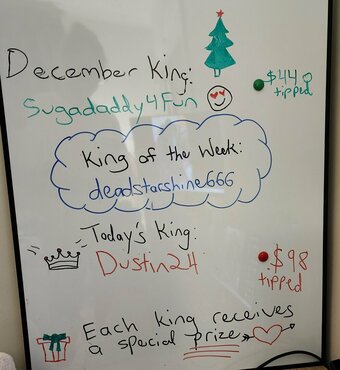 December King:
Sugadaddy4Fun
$440
tipped
King of the Week:
deadstarshine666
Today's King:
Dustin24
$98
tipped
Each king receives
a special prize